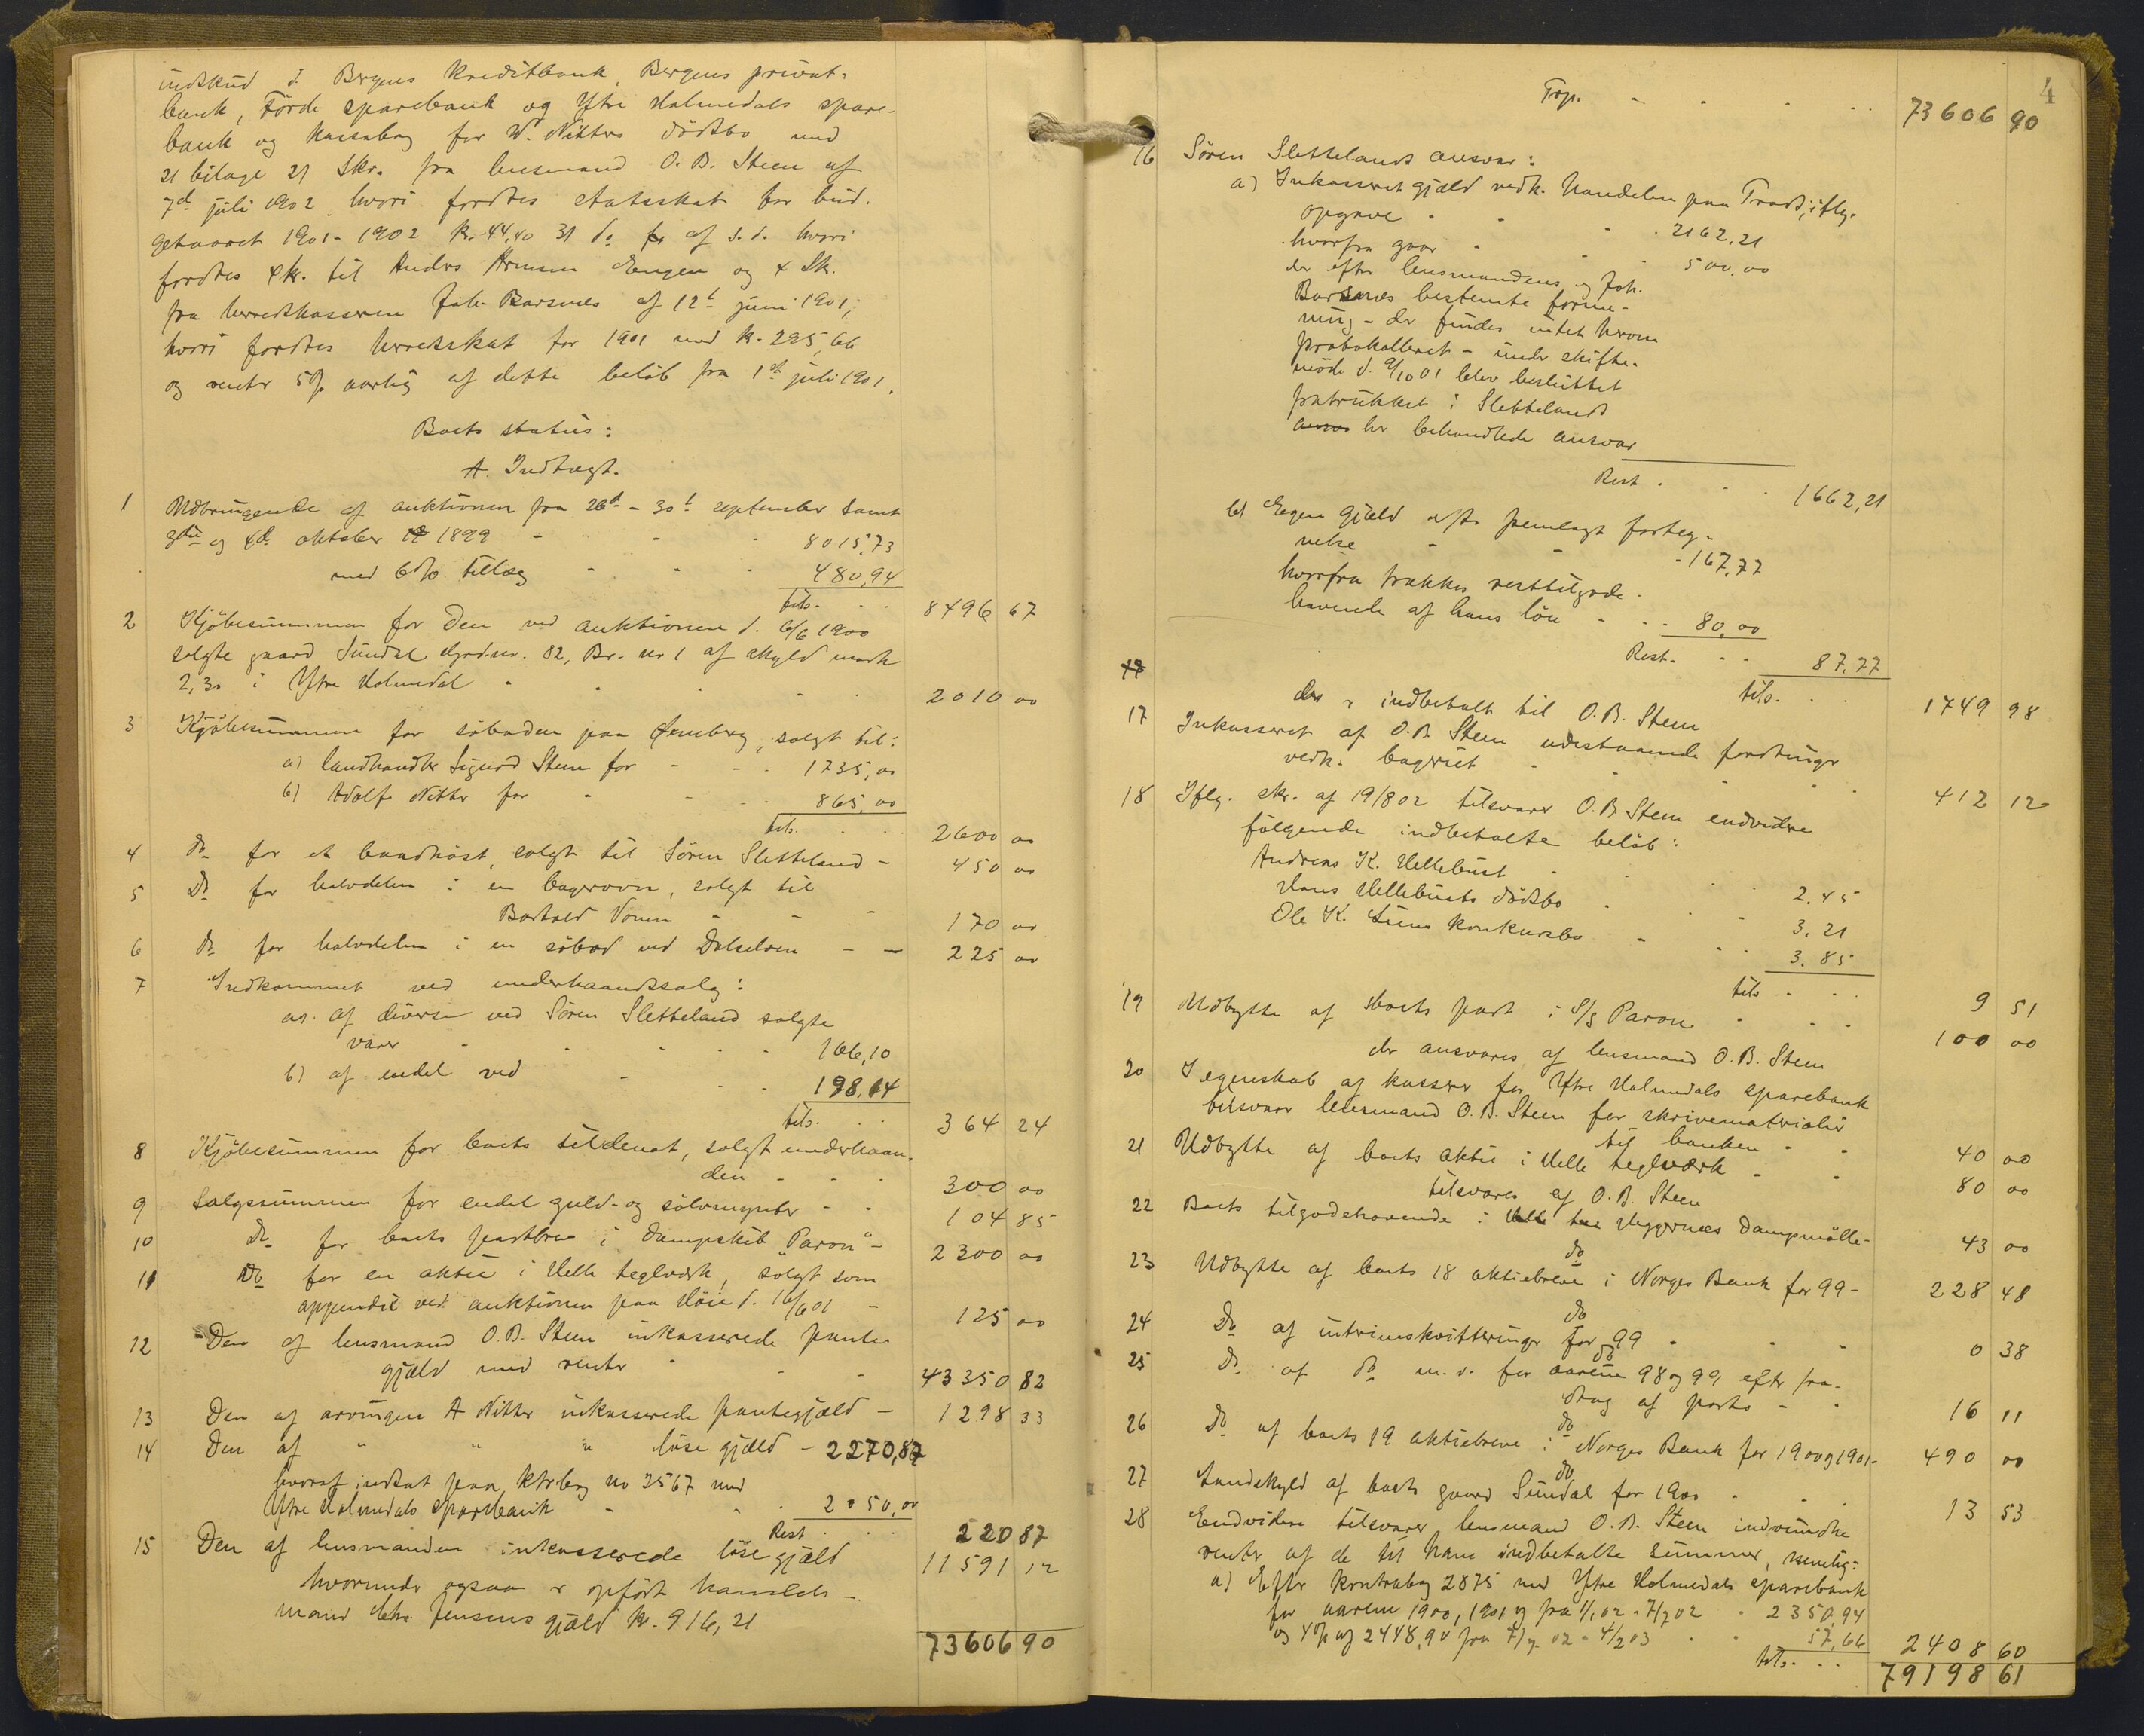 indskud i Bergens Kreditbank, Bergens privat-
bank, Förde sparebank og Ytre Holmedals spare-
bank og kassabog for W. Nitters dödsbo med
21 bilage 21 Skr. fra lensmand O. B. Steen af
7d juli 1902 hvori fordres statsskat for bud-
getaaret 1901-1902 kr. 44,40 31 do af s. d. hvori
fordres 4 kr. til Anders Hermun Engen og 4 Sk.
fra herredskasseren Joh. Barsnes af 12t juni 1901,
hvori fordres herredsskat for 1901 med kr. 295,66
og renter 5% aarlig af dette belöb fra 1st juli 1901.
Boets status:
A. Indtægt.
1 Udbringende af auktionen fra 26d - 30t september samt
3die og 4d oktober 1899 - - - 8015,73
med 6% tillæg - - - 480,94
tils. . . 8496 67
2 Kjöbesummen for den ved auktionen d. 6/6 1900
solgte gaard Sundal Gardsnr. 82, Br. nr 1 af skyld mark
2,30 i Ytre Holmedal - - - - 2010 00
3 Kjöbesummen for söboden paa , solgt til:
a) landhandler Sigurd Steen for - - - 1735,00
b) Adolf Nitter for - - - 865,00
tils. . . 2600 00
4 do for et baadnöst, solgt til Sören Sletteland - 450 00
5 Do for halvdelen i en bagerovn, solgt til
Bertold Vonen - - - 170 00
6 do for halvdelen i en söbod ved Dalselven - - 225 00
7 Indkommet ved underhaandssalg:
a). af diverse ved Sören Sletteland solgte
varer - - - - 166,10
b) af endel ved - - - 198,14
tils. . . 364 24
8 Kjöbesummen for boets tiendenot, solgt underhaan-
den - - - 300 00
9 Salgssummen for endel guld- og sölvmynter - - 104 85
10 Do for boets partbrev i dampskib "Paron" - 2300 00
11 Do for en aktie i Helle teglværk, solgt som
appendix ved auktionen paa Höie d. 16/6 01 - 125 00
12 Den af lensmand O. B. Steen inkasserede pante
gjæld med renter - - - 43350 82
13 Den af arvingen A Nitter inkasserede pantegjæld - 1298 33
14 Den af " " " löse gjæld - 2270,87
hvoraf indsat paa ktrbog no 3567 med
Ytre Holmedals Sparebank - - - 2050,00
Rest . . . 220 87
15 Den af lensmanden inkasserede löse gjæld 11591 12
hvorunder ogsaa er opfört handels-
mand Chr. Jensens gjæld kr. 916,21
73606 90
4
Trp. - - - - 73606 90
16 Sören Slettelands ansvar:
a) Inkasseret gjæld vedk. handelen paa Traad, iflg.
opgave - - - 2162,21
hvorfra gaar - - - 500,00
der efter lensmandens og Joh.
Barsnes bestemte forme-
ning - der findes intet herom
protokolleret - under skifte-
möde d. 9/10 01 blev besluttet
fratrukket i Slettelands
her behandlede ansvar
Rest . . . 1662,21
b) Egen gjæld efter fremlagt forteg-
nelse - - - 167,77
hvorfra trækkes resttilgode-
havende af hans lön - - - 80,00
Rest. . . 87,77
tils. . . 1749 98
der er indbetalt til O. B. Steen
17 Inkasseret af O. B. Steen udestaaende fordringer
vedk. bageriet - - - - 412 12
18 Iflg. skr. af 19/8 02 tilsvarer O. B. Steen endvidere
fölgende indbetalte belöb:
Andreas K. Hellebust - - - 2.45
Hans Hellebusts dödsbo - - - 3.21
Ole K. Lunns konkursbo - - - 3.85
tils . . . 9 51
19 Udbytte af boets part i S/S Paron - - - 100 00
der ansvares af lensmand O. B. Steen
20 I egenskab af kasser for Ytre Holmedals sparebank
tilsvarer lensmand O. B. Steen for skrivematerialier
til banken - - 40 00
21 Udbytte af boets aktie i Helle teglværk - - 80 00
tilsvares af O. B. Steen
22 Boets tilgodehavende i Dampmölle- 43 00
do
23 Udbytte af boets 18 aktiebreve i Norges Bank for 99 - 228 48
do
24 Do af intrimskvitteringer for 99 - - - 0 38
do
25 Do af do m. v. for aarene 98 og 99 efter fra-
drag af porto - - 16 11
do
26 Do af boets 19 aktiebreve i Norges Bank for 1900 og 1901- 490 00
do
27 Landskyld af boets gaard Sundal for 1900 - - - 13 53
28 Endvidere tilsvarer lensmand O. B. Steen indvundne
renter af de til ham indbetalte summer, nemlig:
a) Efter kontrabog 2875 med Ytre Holmedals sparebank
for aarene 1900, 1901 og fra 1/1 02 - 7/7 02 - 2350,94
og 4% af 2448,90 fra 7/7 02 - 4/2 03 - - 57,66 2408 60
tils. . . 79198 61